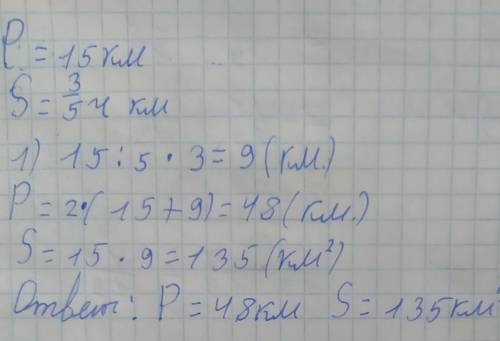 P = 15 км
S = 3/5 ч км
1) 15 : 5 · 3 = 9 (км.)
P = 2·(15+9) = 48 (км.)
S = 15 · 9 = 135 (км²)
Ответы: P = 48км S = 135км